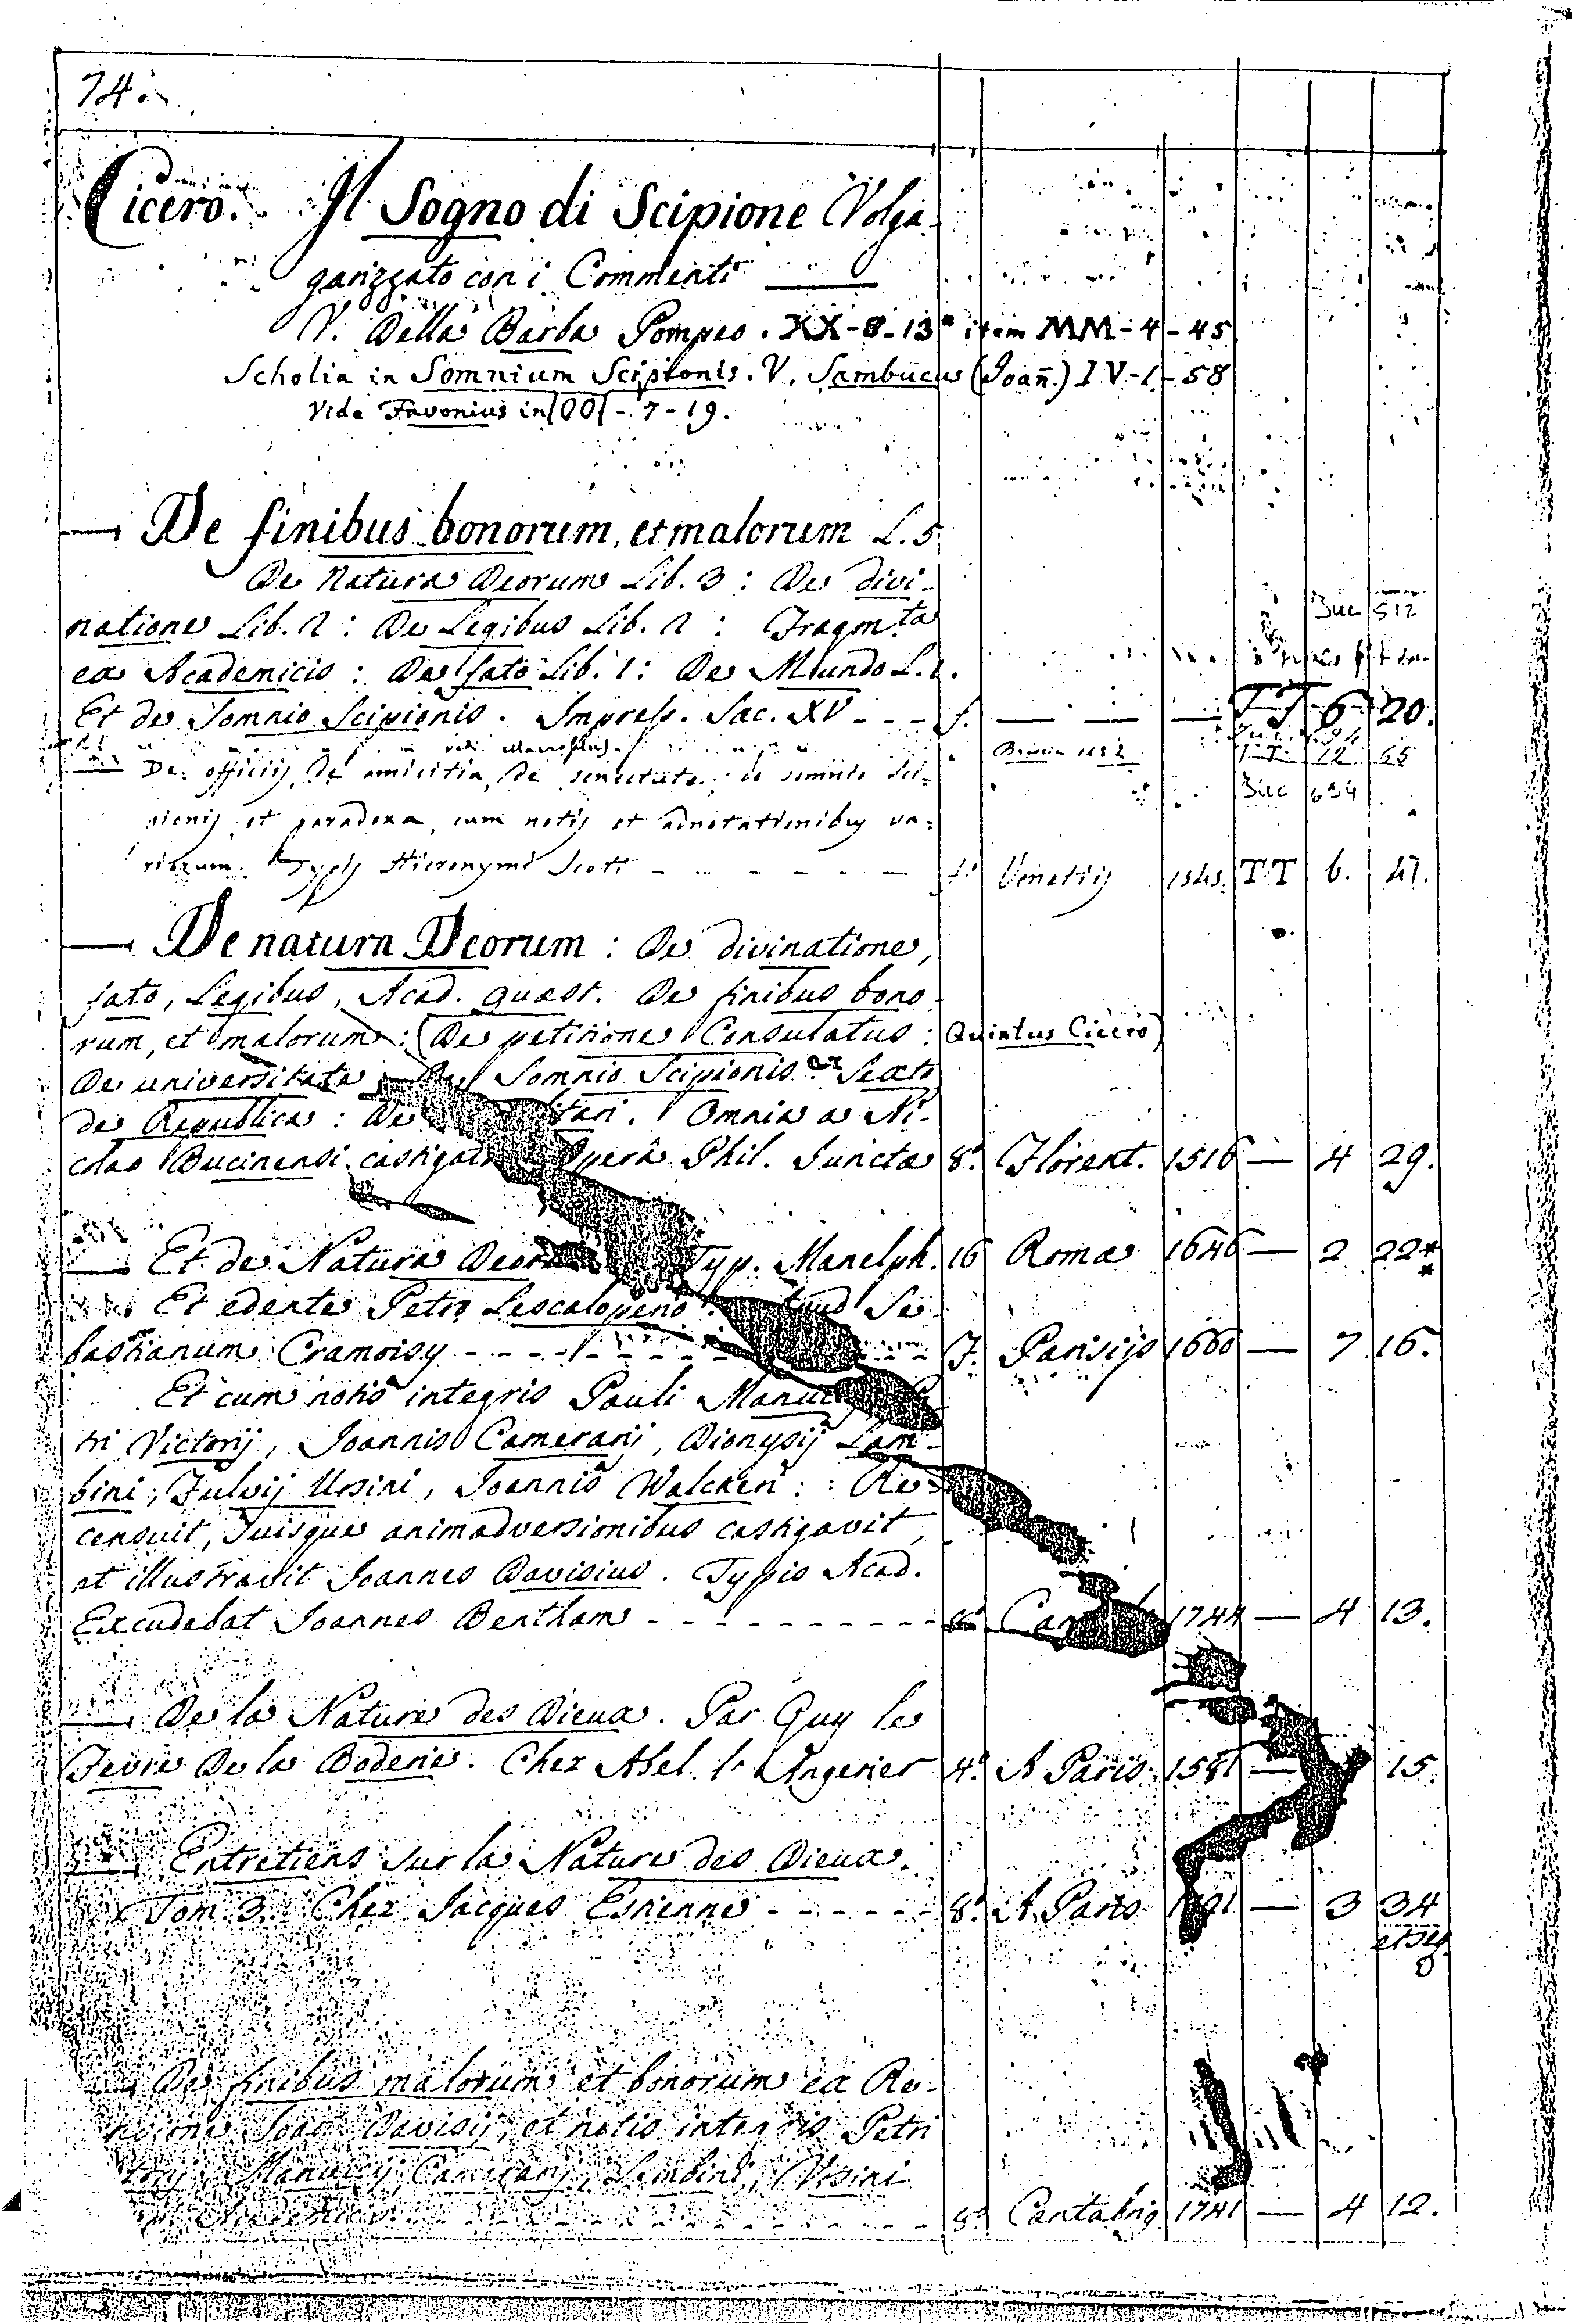 74.
Cicero. Il Sogno di Scipione Volga-
garizzato con i Commenti
V. Della Barba Pompeo. XX-8-13* item MM-4-45
Scholia in Somnium Scipionis. V. Sambucus (Joañ.) IV-1-58
Vide Favonius in 00-7-19.
— De finibus bonorum, et malorum L. 5
De Natura Deorum Lib. 3: De divi-
natione Lib. 2: De Legibus Lib. 2: Fragm.ta
ex Academicis: De fato Lib. 1: De Mundo L. 1.
Et de Somnio Scipionis. Impress. Sac. XV - - - f. — — — 6 20.
— De officijs, de amicitia, de senectute, de somnio Sci=
pionis, et paradoxa, cum notis et adnotationibus va=
riorum. Typis Hieronymi Scoti - - - - - - f. Venetijs 1545. TT 6. 47.
— De natura Deorum: De divinatione,
fato, Legibus, Acad. quæst. De finibus bono-
rum, et malorum: (De petitione Consulatus: Quintus Cicero)
De universitate, Somnio Scipionis ex Sexto
de Republica: De Omnia a Ni-
colao Bucinensi castigata Opera Phil. Juncta 8.° Florent. 1516 — 4 29.
— Et de Natura Typ. Manelph. 16 Roma 1646 — 2 22**
Et edente Petro Lescaloperio Se-
bastianum Cramoisy - - - - - - f. Parisijs 1660 — 7 16.
Et cum notis integris Pauli
tri Victorij, Joannis Camerarij, Dionysij Lam-
bini, Fulvij Ursini, Joannis Walckeri: Re-
censuit, suisque animadversionibus castigavit,
et illustravit Joannes Davisius. Typis Acad.
Excudebat Joannes Bentham - - - - - - - - 8.° 1744 — 4 13.
— De la Nature des Dieux. Par Guy le
Fevre De la Boderie. Chez Abel l'Angerier 4.° A Paris 1581 — 15.
— Entretiens sur la Nature des Dieux.
Tom. 3. Chez Jacques Estienne - - - - - - 8.° A Paris — 3 34
et seq.
— De finibus malorum et bonorum ex Re-
Davisij, et notis integris Petri
Manutij, Camerarij, Lambini, Ursini
- - - - - - - - 8.° Cantabrig. 1741 — 4 12.